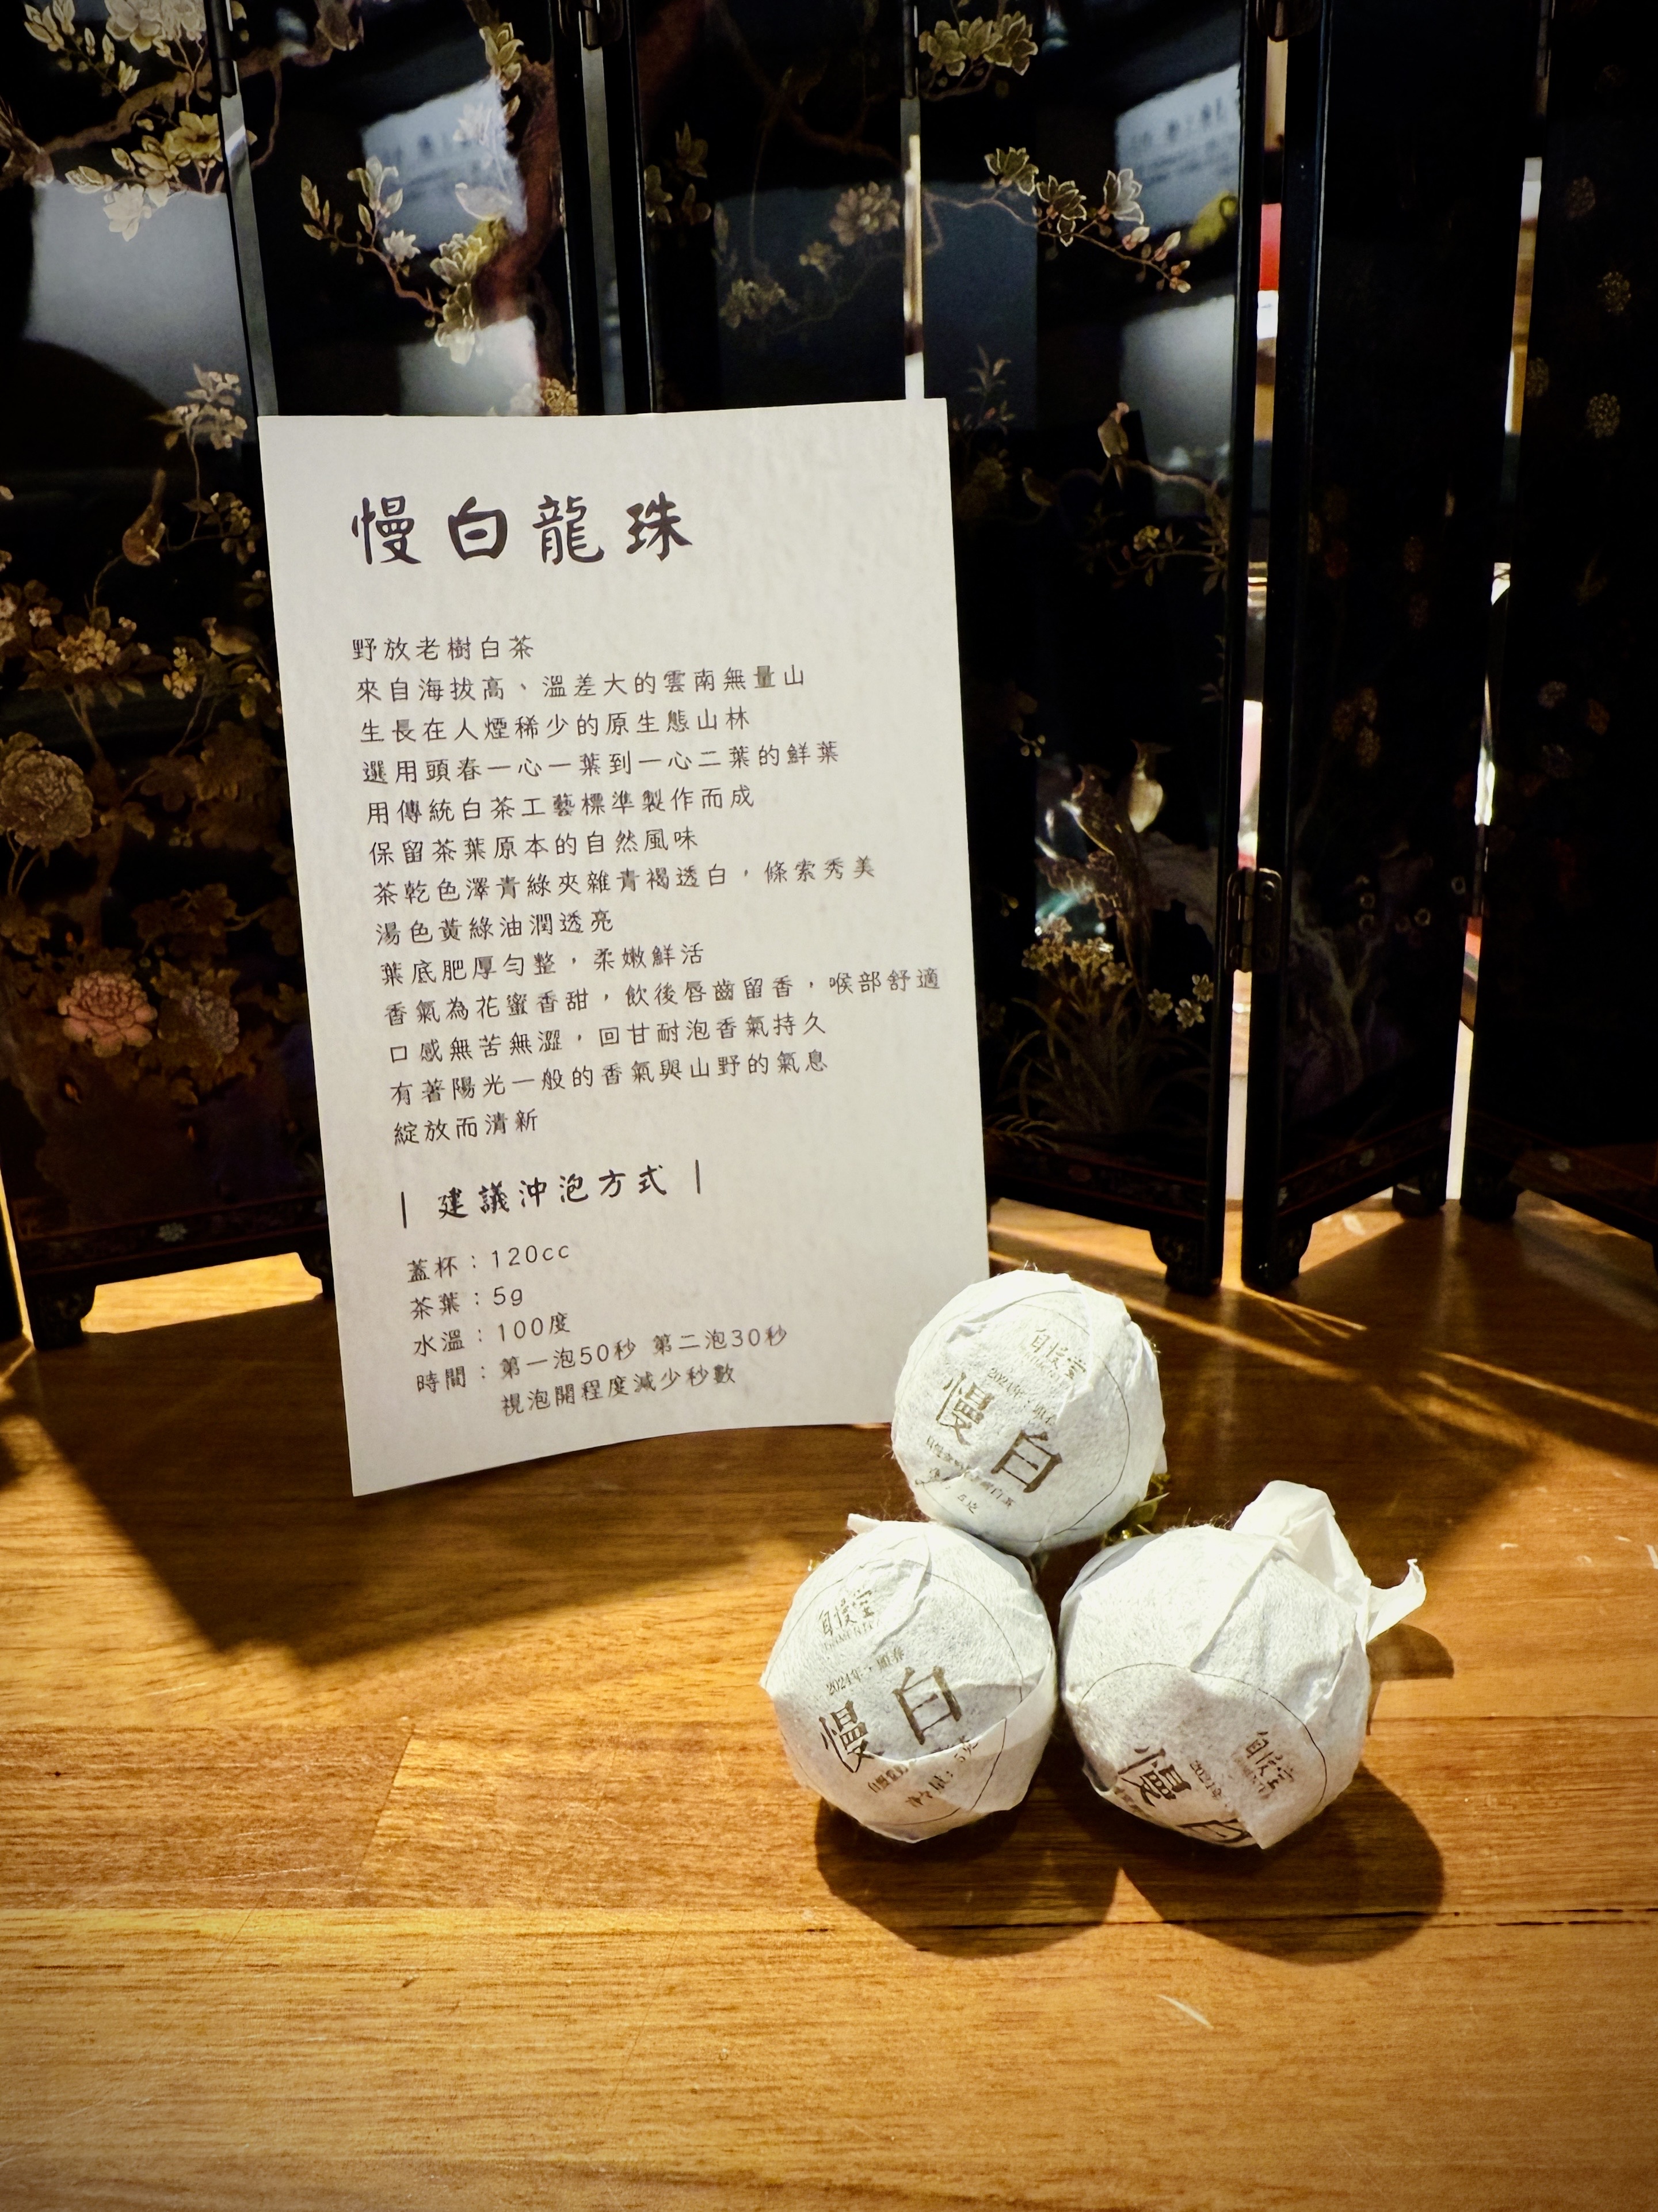 慢白龍珠
野放老樹白茶
來自海拔高、溫差大的雲南無量山
生長在人煙稀少的原生態山林
選用頭春一心一葉到一心二葉的鮮葉
用傳統白茶工藝標準製作而成
保留茶葉原本的自然風味
茶乾色澤青綠夾雜青褐透白，條索秀美
湯色黃綠油潤透亮
葉底肥厚勻整，柔嫩鮮活
香氣為花蜜香甜，飲後唇齒留香，喉部舒適
口感無苦無澀，回甘耐泡香氣持久
有著陽光一般的香氣與山野的氣息
綻放而清新
| 建議沖泡方式 |
蓋杯：120cc
茶葉：5g
水溫：100度
時間：第一泡50秒 第二泡30秒
視泡開程度減少秒數
自慢堂
2024年·頭春
慢白
自慢堂
2024年·頭春
慢白
自慢堂
2024年
慢白